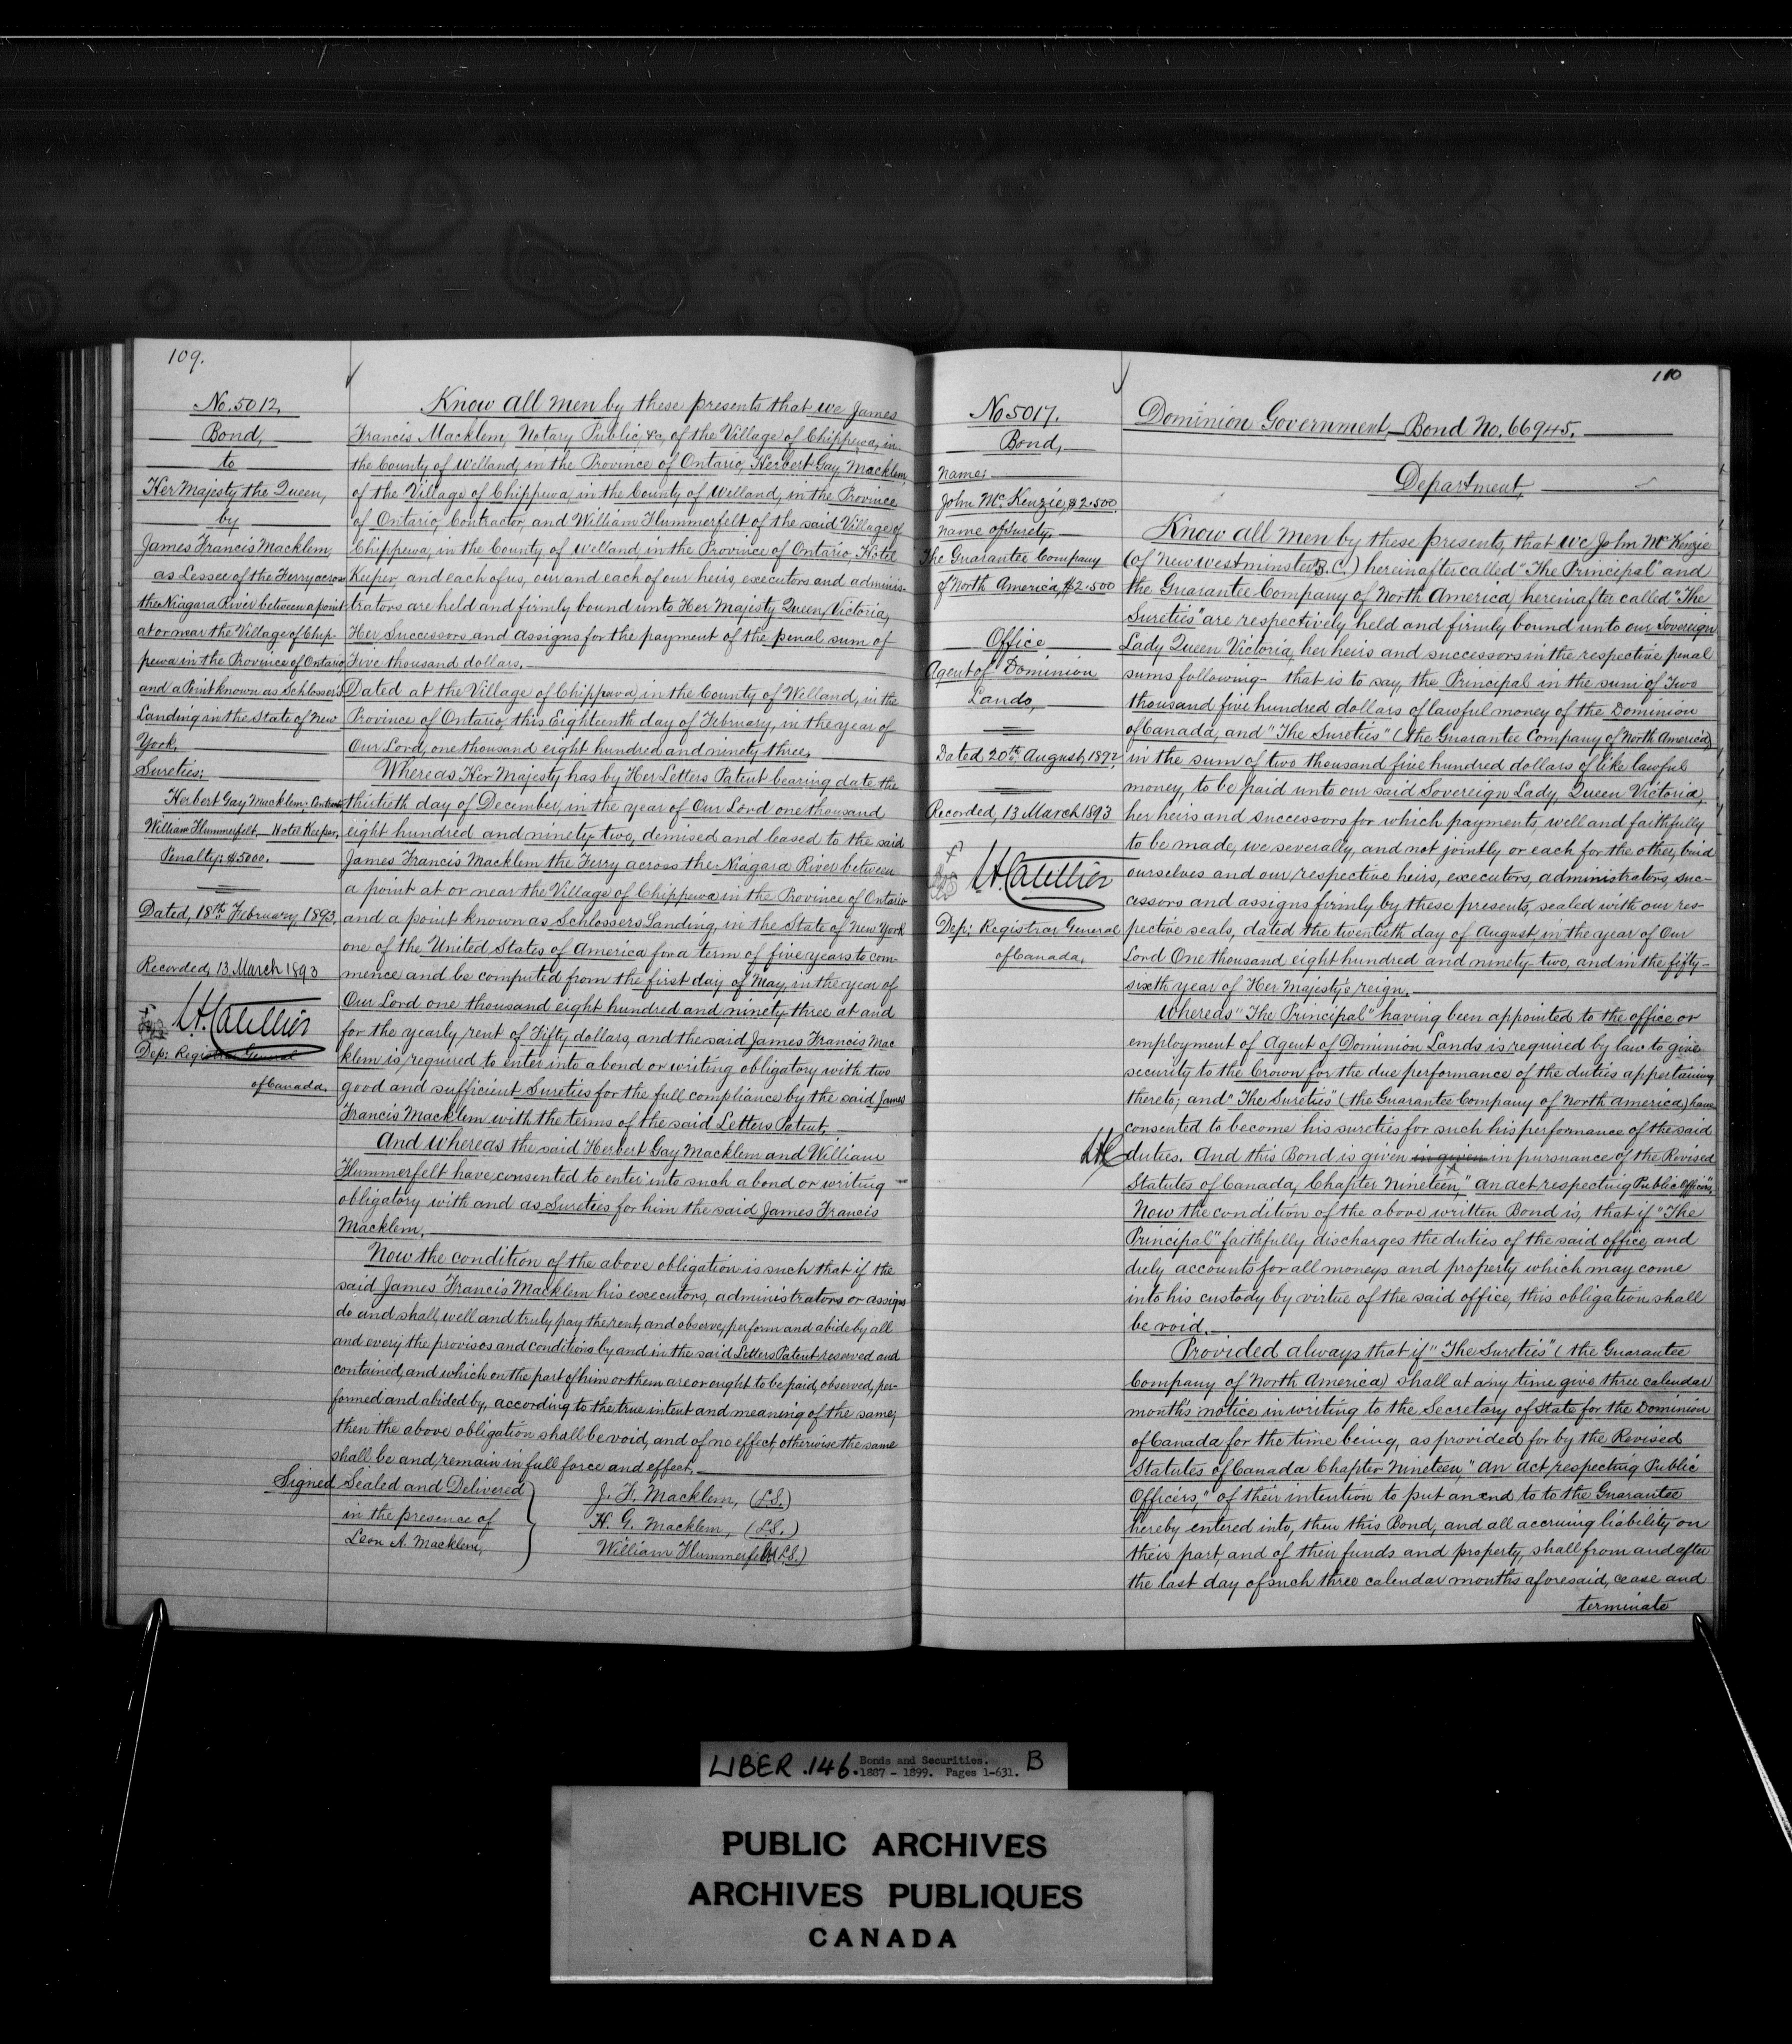 109.
No. 5012,
Bond,
to
Her Majesty the Queen,
by
James Francis Macklem,
as Lessee of the Ferry across
the Niagara River between a point
at or near the Village of Chip-
pewa in the Province of Ontario
and a Point known as Schlossers
Landing in the State of New
York,
Sureties:
Herbert Gay Macklem
William Hummerfelt, Hotel Keeper,
Penalty: $5000.
Dated, 18th February, 1893.
Recorded, 13 March 1893
Dep: Registrar General
of Canada.
Know all men by these presents that we James
Francis Macklem, Notary Public, &c, of the Village of Chippewa, in
the County of Welland, in the Province of Ontario, Herbert Gay Macklem,
of the Village of Chippewa, in the County of Welland, in the Province
of Ontario, Contractor, and William Hummerfelt of the said Village of
Chippewa, in the County of Welland in the Province of Ontario, Hotel
Keeper, and each of us, our and each of our heirs, executors and adminis-
trators are held and firmly bound unto Her Majesty Queen Victoria,
Her Successors and assigns for the payment of the penal sum of
Five thousand dollars.
Dated at the Village of Chippewa, in the County of Welland, in the
Province of Ontario, this Eighteenth day of February, in the year of
Our Lord, one thousand eight hundred and ninety three,
Whereas Her Majesty has by Her Letters Patent bearing date the
thirtieth day of December, in the year of Our Lord one thousand
eight hundred and ninety-two, demised and leased to the said
James Francis Macklem the Ferry across the Niagara River between
a point at or near the Village of Chippewa in the Province of Ontario
and a point known as Schlossers Landing, in the State of New York
one of the United States of America for a term of five years to com-
mence and be computed from the first day of May, in the year of
Our Lord one thousand eight hundred and ninety-three at and
for the yearly rent of Fifty dollars, and the said James Francis Mac
klem is required to enter into a bond or writing obligatory with two
good and sufficient Sureties for the full compliance by the said James
Francis Macklem with the terms of the said Letters Patent
And whereas the said Herbert Gay Macklem and William
Hummerfelt have consented to enter into such a bond or writing
obligatory with and as Sureties for him the said James Francis
Macklem,
Now the condition of the above obligation is such that if the
said James Francis Macklem his executors, administrators or assigns
do and shall, well and truly pay the rent, and observe, perform and abide by all
and every the provisos and conditions by and in the said Letters Patent reserved and
contained, and which on the part of him or them are or ought to be paid, observed, per-
formed and abided by, according to the true intent and meaning of the same,
then the above obligation shall be void, and of no effect, otherwise the same
shall be and remain in full force and effect,
Signed Sealed and Delivered
in the presence of
Leon A. Macklem,
J. F. Macklem, (L.S.)
H. G. Macklem, (L.S.)
William Hummerfelt (L.S.)
110
No 5017.
Bond,
Name:
John McKenzie, $2.500
Name of Surety,
The Guarantee Company
of North America, $2.500
Office
Agent of Dominion
Lands,
Dated 20th August, 1892,
Recorded, 13 March 1893
Dep: Registrar General
of Canada,
Dominion Government, Bond No. 66945.
Department,
Know all men by these presents, that we John McKenzie
(of New Westminster B.C.) hereinafter called "The Principal" and
the Guarantee Company of North America, hereinafter called "The
Sureties" are respectively held and firmly bound unto our Sovereign
Lady Queen Victoria, her heirs and successors in the respective penal
sums following - that is to say, the Principal in the sum of Two
thousand five hundred dollars of lawful money of the Dominion
of Canada, and "The Sureties" (the Guarantee Company of North America)
in the sum of two thousand five hundred dollars of like lawful
money, to be paid unto our said Sovereign Lady, Queen Victoria,
her heirs and successors for which payments, well and faithfully
to be made, we severally, and not jointly or each for the other, bind
ourselves and our respective heirs, executors, administrators, suc-
cessors and assigns firmly by these presents, sealed with our res-
pective seals, dated the twentieth day of August, in the year of Our
Lord One thousand eight hundred and ninety-two, and in the fifty-
sixth year of Her Majesty's reign.
Whereas "The Principal" having been appointed to the office or
employment of Agent of Dominion Lands is required by law to give
security to the Crown for the due performance of the duties appertaining
thereto; and "The Sureties" (the Guarantee Company of North America) have
consented to become his sureties for such his performance of the said
duties. And this Bond is given in given in pursuance of the Revised
Statutes of Canada, Chapter Nineteen, "An act respecting Public Officers,"
Now the condition of the above written Bond is, that if "The
Principal" faithfully discharges the duties of the said office, and
duly accounts for all moneys and property which may come
into his custody by virtue of the said office, this obligation shall
be void.
Provided always that if "The Sureties" (the Guarantee
Company of North America) shall at any time give three calendar
months notice in writing to the Secretary of State for the Dominion
of Canada for the time being, as provided for by the Revised
Statutes of Canada Chapter Nineteen, "An act respecting Public
Officers," of their intention to put an end to to the Guarantee
hereby entered into, then this Bond, and all accruing liability on
their part, and of their funds and property, shall from and after
the last day of such three calendar months aforesaid, cease and
terminate
LIBER .146. Bonds and Securities. B
1887 - 1899. Pages 1-631.
PUBLIC ARCHIVES
ARCHIVES PUBLIQUES
CANADA